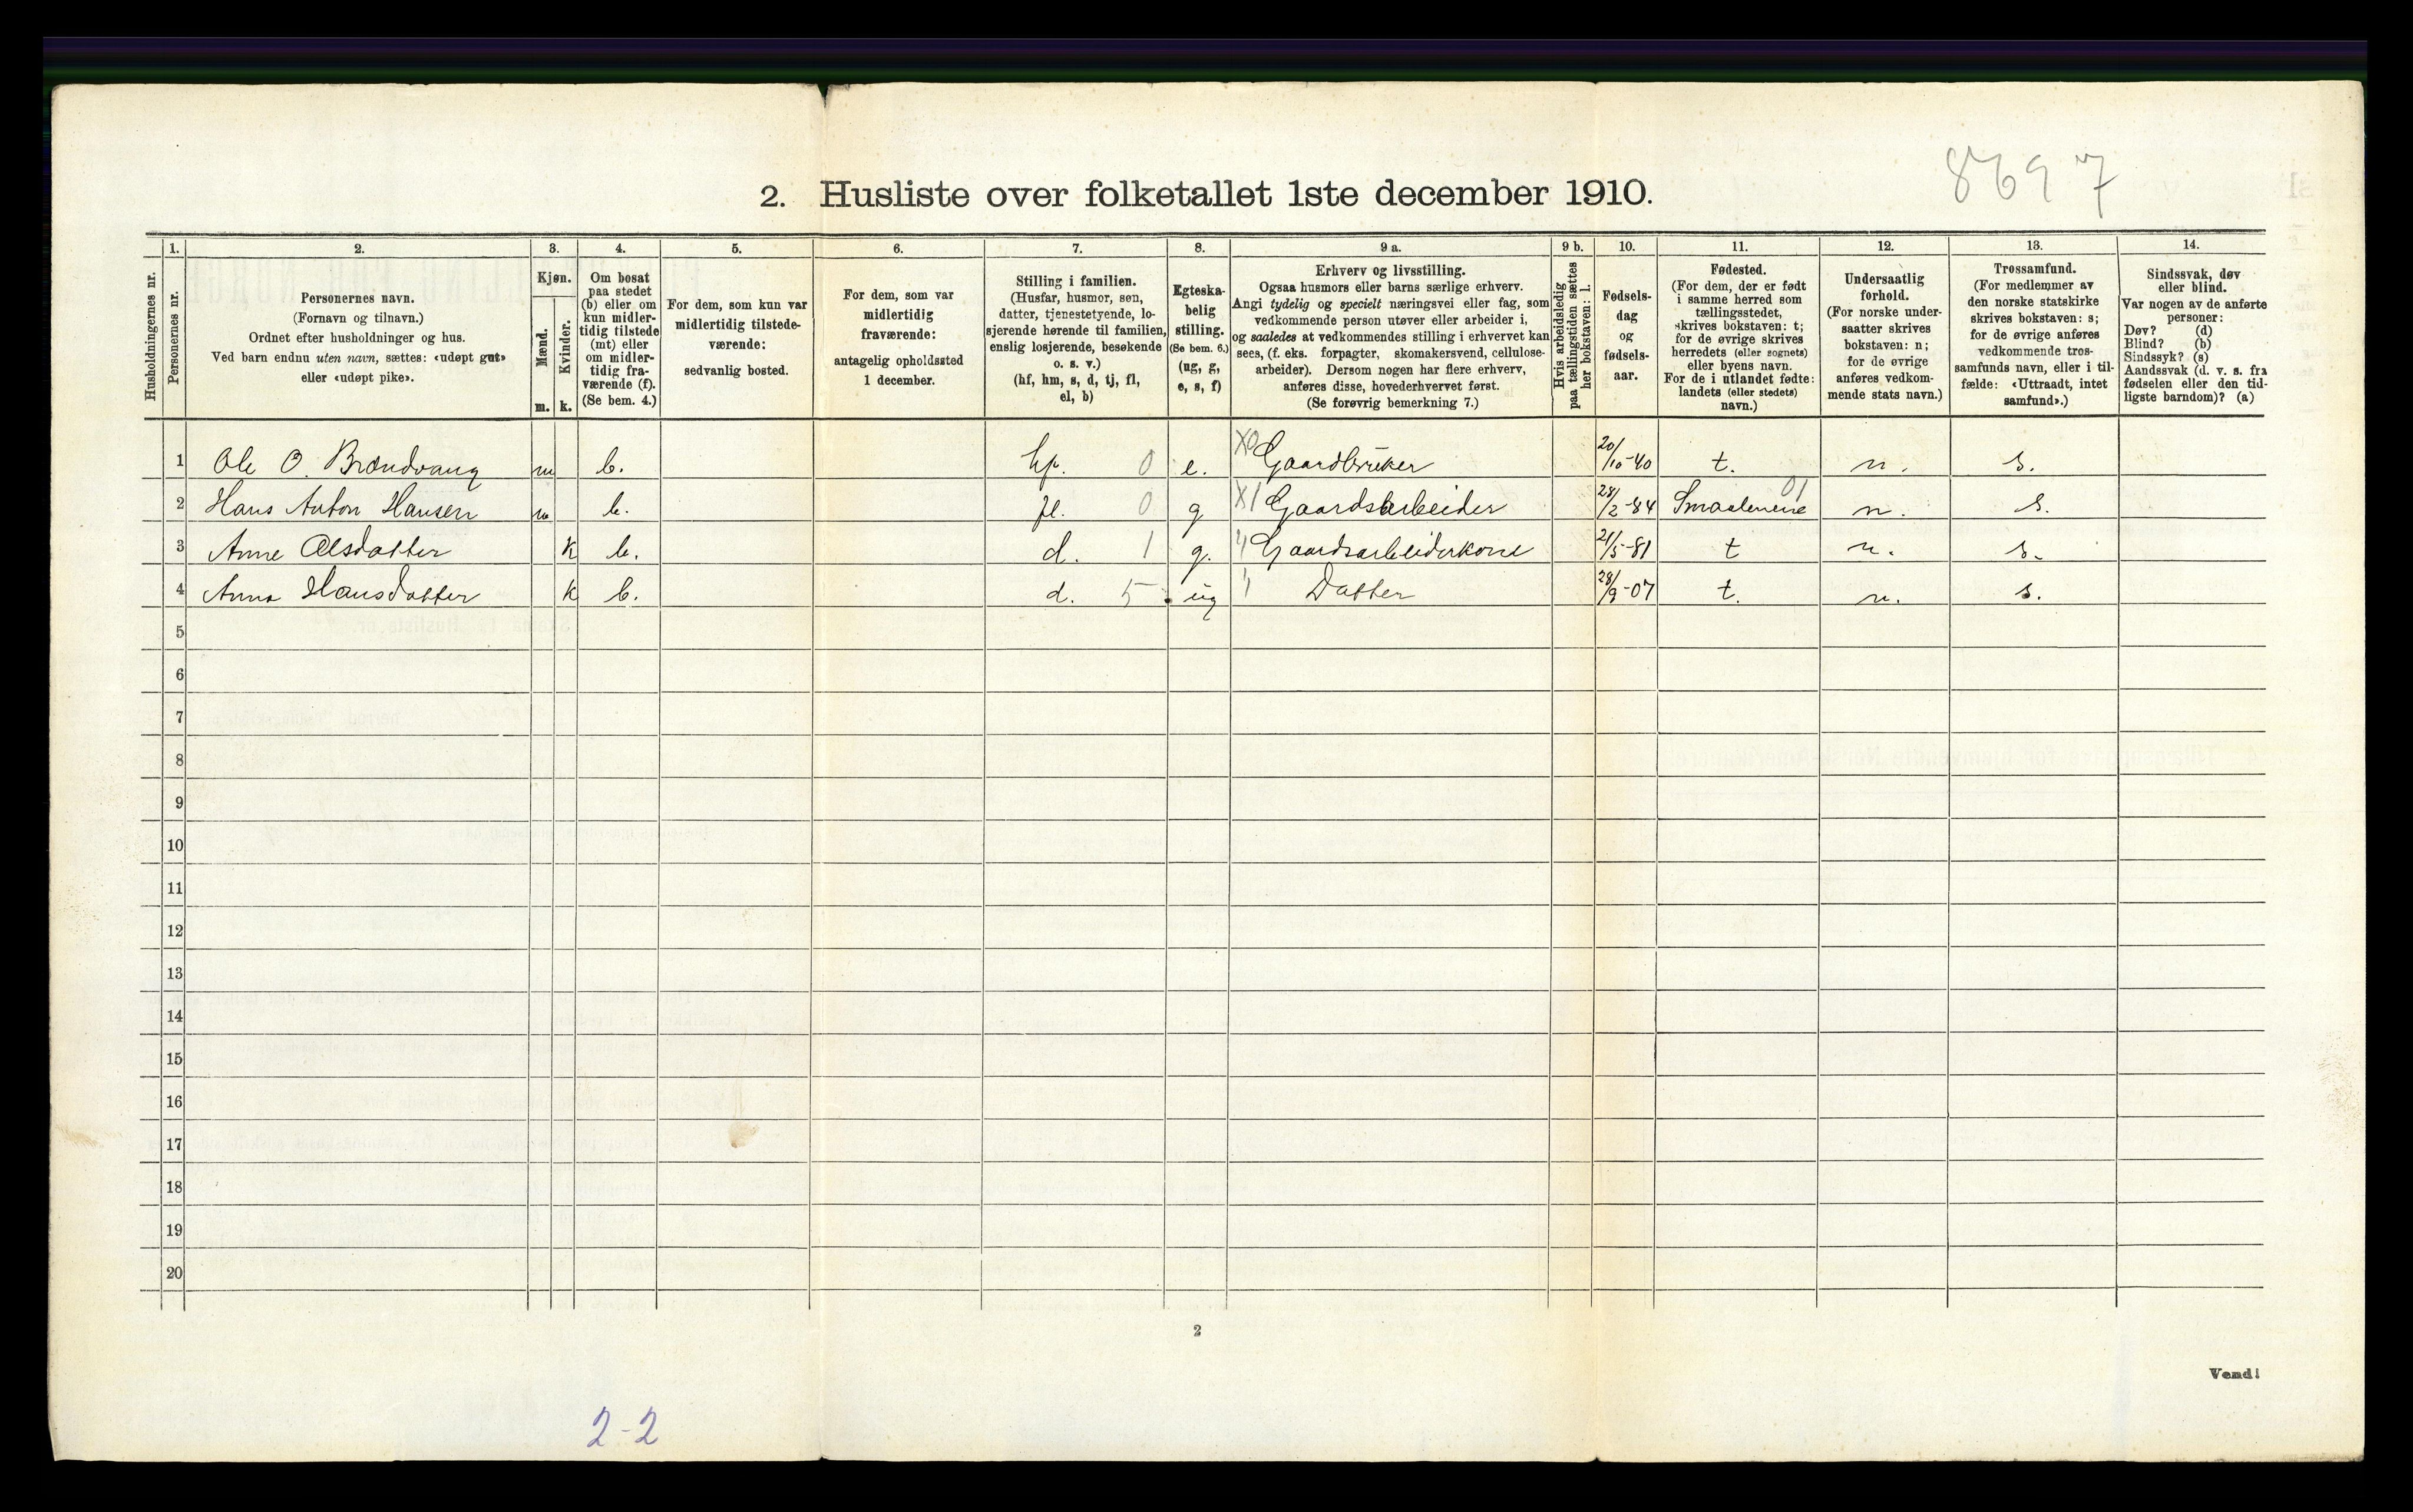 8697
2. Husliste over folketallet 1ste december 1910.
Husholdningernes nr.
1.
Personernes nr.
2.
Personernes navn.
(Fornavn og tilnavn.)
Ordnet efter husholdninger og hus.
Ved barn endnu uten navn, sættes: «udøpt gut»
eller «udøpt pike».
3.
Kjøn.
Mænd.
Kvinder.
m. k.
4.
Om bosat
paa stedet
(b) eller om
kun midler-
tidig tilstede
(mt) eller
om midler-
tidig fra-
værende (f).
(Se bem. 4.)
5.
For dem, som kun var
midlertidig tilstede-
værende:
sedvanlig bosted.
6.
For dem, som var
midlertidig
fraværende:
antagelig opholdssted
1 december.
7.
Stilling i familien.
(Husfar, husmor, søn,
datter, tjenestetyende, lo-
sjerende hørende til familien,
enslig losjerende, besøkende
o. s. v.)
(hf, hm, s, d, tj, fl,
el, b)
8.
Egteska-
belig
stilling.
(Se bem. 6.)
(ug, g,
e, s, f)
9 a.
Erhverv og livsstilling.
Ogsaa husmors eller barns særlige erhverv.
Angi tydelig og specielt næringsvei eller fag, som
vedkommende person utøver eller arbeider i,
og saaledes at vedkommendes stilling i erhvervet kan
sees, (f. eks. forpagter, skomakersvend, cellulose-
arbeider). Dersom nogen har flere erhverv,
anføres disse, hovederhvervet først.
(Se forøvrig bemerkning 7.)
9 b.
Hvis arbeidsledig
paa tællingstiden sættes
her bokstaven: l.
10.
Fødsels-
dag
og
fødsels-
aar.
11.
Fødested.
(For dem, der er født
i samme herred som
tællingsstedet,
skrives bokstaven: t;
for de øvrige skrives
herredets (eller sognets)
eller byens navn.
For de i utlandet fødte:
landets (eller stedets)
navn.)
12.
Undersaatlig
forhold.
(For norske under-
saatter skrives
bokstaven: n;
for de øvrige
anføres vedkom-
mende stats navn.)
13.
Trossamfund.
(For medlemmer av
den norske statskirke
skrives bokstaven: s;
for de øvrige anføres
vedkommende tros-
samfunds navn, eller i til-
fælde: «Uttraadt, intet
samfund».)
14.
Sindssvak, døv
eller blind.
Var nogen av de anførte
personer:
Døv? (d)
Blind? (b)
Sindssyk? (s)
Aandssvak (d. v. s. fra
fødselen eller den tid-
ligste barndom)? (a)
1 Ole O. Brændvang m b. hf. 0 e. X0 Gaardbruker 20/10-40 t. n. s.
2 Hans Anton Hansen m b. fl. 0 g X1 Gaardsarbeider 28/2-84 Smaalenene 01 n. s.
3 Anne Olsdatter k b. d. 1 g. " Gaardsarbeiderkone 21/5-81 t n. s.
4 Anna Hansdatter k b. d. 5 ug " Datter 28/9-07 t. n. s.
5
6
7
8
9
10
11
12
13
14
15
16
17
18
19
20
2
Vend!
2-2